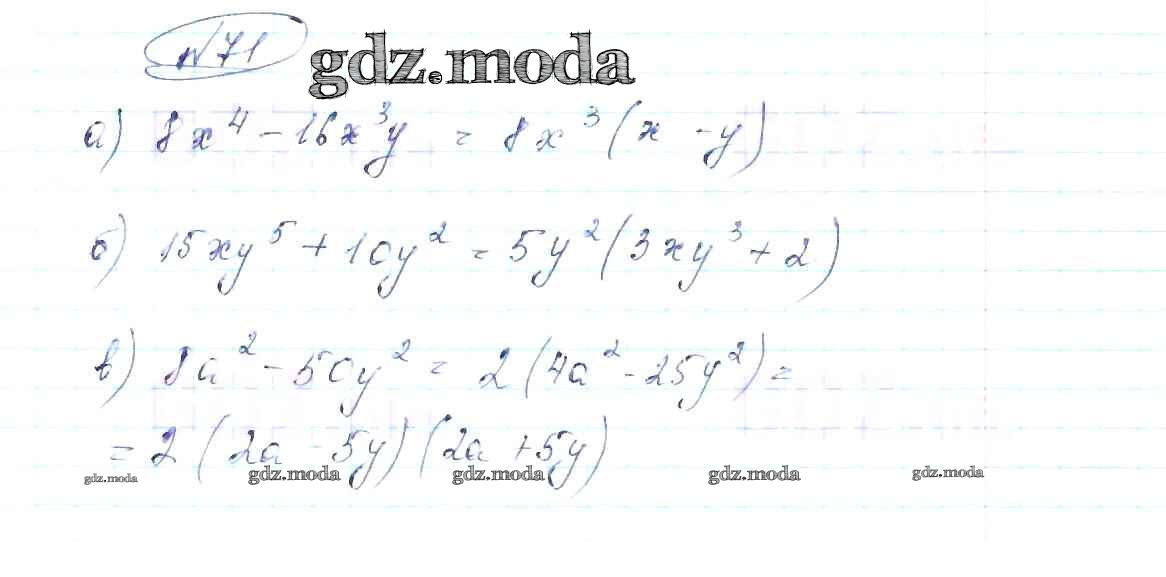 №71 gdz.moda
а) 8x⁴ - 16x³y = 8x³(x - y)
б) 15xy⁵ + 10y² = 5y²(3xy³ + 2)
в) 8a² - 50y² = 2(4a² - 25y²) =
= 2(2a - 5y)(2a + 5y)
gdz.moda gdz.moda gdz.moda gdz.moda gdz.moda